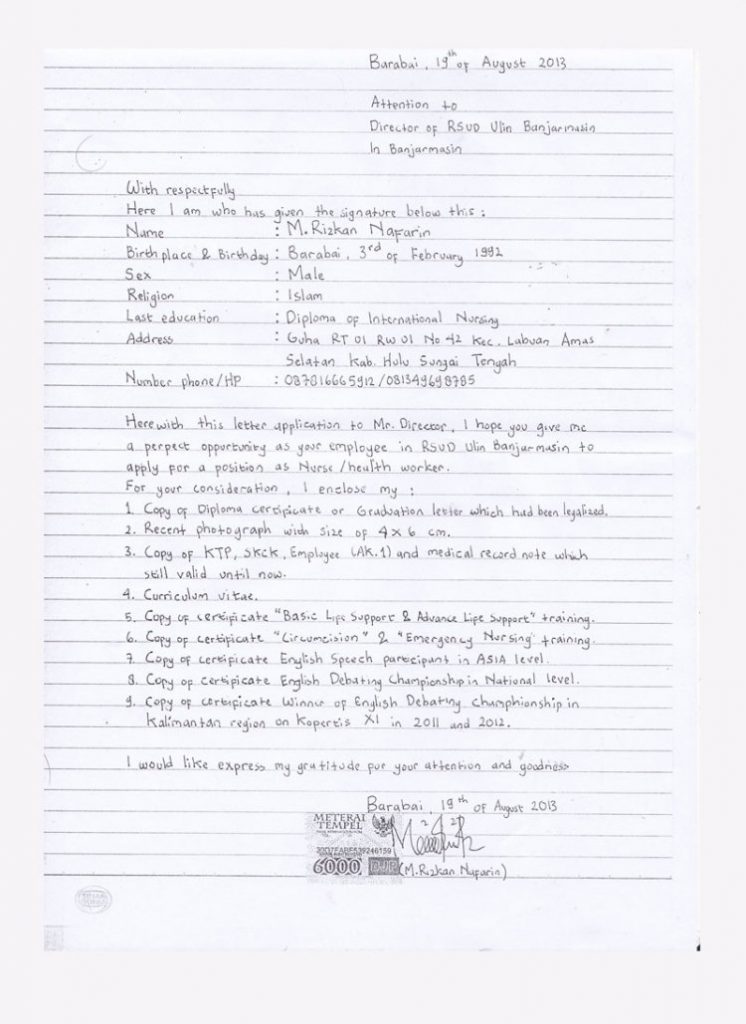 Barabai, 19th of August 2013
Attention to
Director of RSUD Ulin Banjarmasin
In Banjarmasin
With respectfully
Here I am who has given the signature below this :
Name : M. Rizkan Naparin
Birthplace & Birthday : Barabai, 3rd of February 1992
Sex : Male
Religion : Islam
Last education : Diploma of International Nursing
Address : Guha RT 01 RW 01 No 42 Kec. Labuan Amas
Selatan Kab. Hulu Sungai Tengah
Number phone/HP : 087816665912/081349698785
Herewith this letter application to Mr. Director, I hope you give me
a perpect opportunity as your employee in RSUD Ulin Banjarmasin to
apply for a position as Nurse/health worker.
For your consideration, I enclose my :
1. Copy of Diploma certificate or Graduation letter which had been legalized.
2. Recent photograph with size of 4 x 6 cm.
3. Copy of KTP, SKCK, Employee (AK.1) and medical record note which
still valid until now.
4. Curriculum vitae.
5. Copy of certificate "Basic Life Support & Advance Life Support" training.
6. Copy of certificate "Circumcision" & "Emergency Nursing" training.
7. Copy of certificate English Speech participant in ASIA level.
8. Copy of certificate English Debating Championship in National level.
9. Copy of certificate Winner of English Debating Champhionship in
Kalimantan region on Kopertis XI in 2011 and 2012.
I would like express my gratitude for your attention and goodness
Barabai, 19th of August 2013
METERAI
TEMPEL
6000 DJP
(M. Rizkan Naparin)